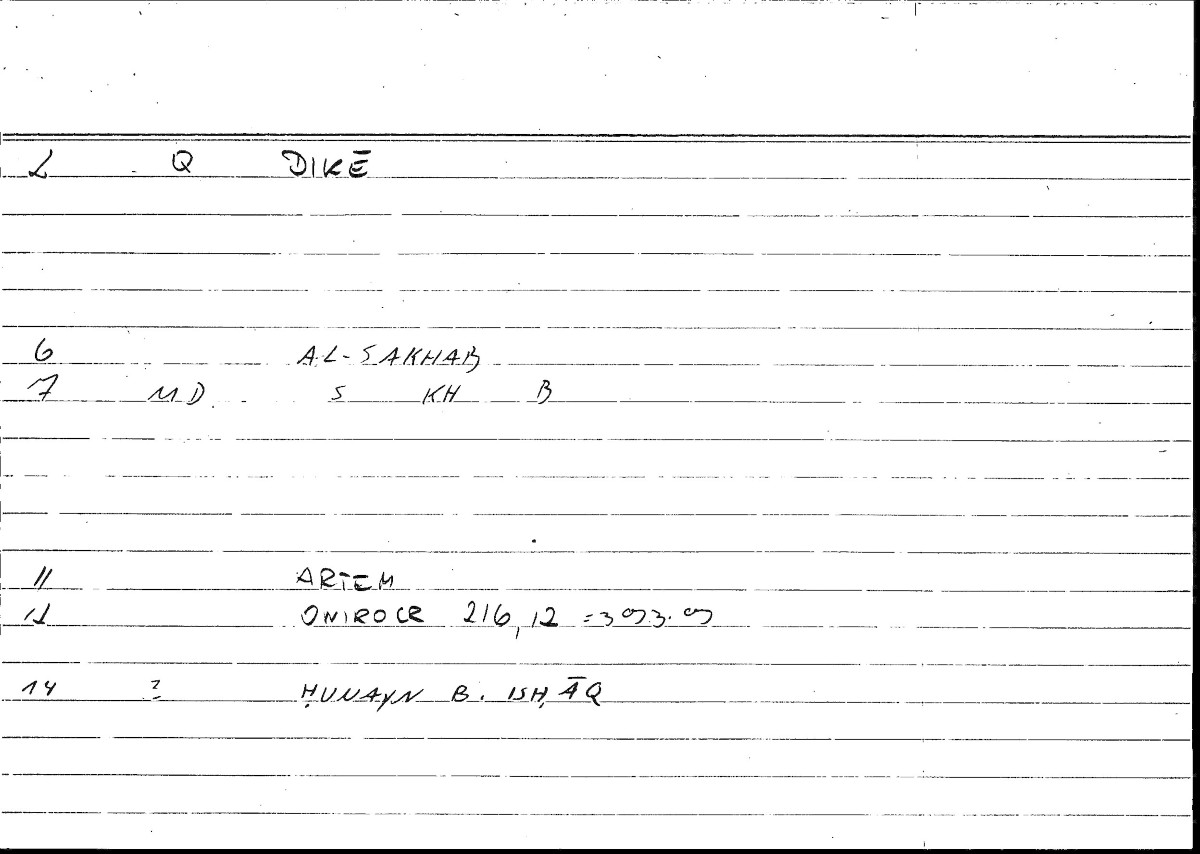 2 Q DIKĒ
6 AL-SAKHAB
7 MD S KH B
11 ARTEM
12 ONIROCR 216,12 =
14 ? ḤUNAYN B. ISḤĀQ